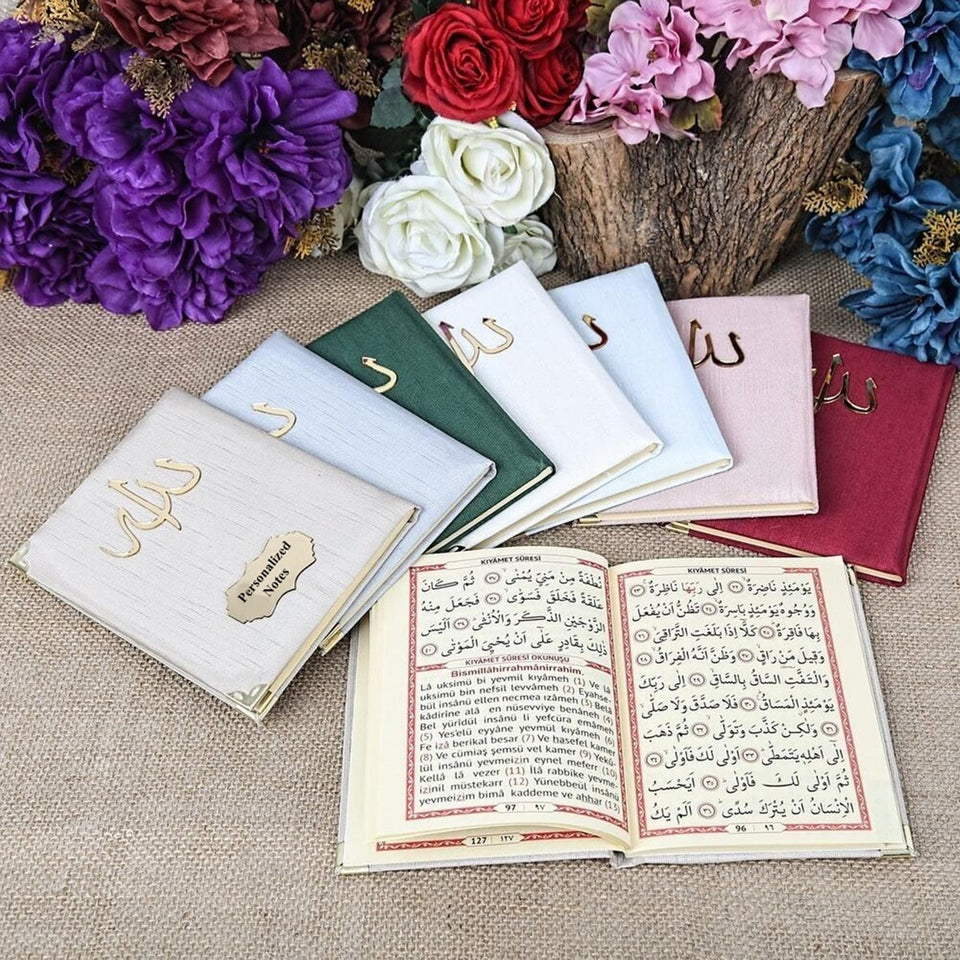 الله
Personalized
Notes
KIYÂMET SÛRESİ
نُطْفَةً مِنْ مَنِيٍّ يُمْنٰىۙ ﴿٣٧﴾ ثُمَّ كَانَ
عَلَقَةً فَخَلَقَ فَسَوّٰىۙ ﴿٣٨﴾ فَجَعَلَ مِنْهُ
الزَّوْجَيْنِ الذَّكَرَ وَالْاُنْثٰىۜ ﴿٣٩﴾ اَلَيْسَ
ذٰلِكَ بِقَادِرٍ عَلٰٓى اَنْ يُحْيِيَ الْمَوْتٰى ﴿٤٠﴾
KIYÂMET SÛRESİ OKUNUŞU
Bismillâhirrahmânirrahîm.
Lâ uksimü bi yevmil kıyâmeh (1) Ve lâ
uksimü bin nefsil levvâmeh (2) Eyahse-
bül insânü ellen necmea ızâmeh (3) Belâ
kâdirîne alâ en nüsevviye benâneh (4)
Bel yürîdül insânü li yefcüra emâmeh
(5) Yes'elü eyyâne yevmül kıyâmeh (6)
Fe izâ berikal besar (7) Ve hasefel kamer
(8) Ve cümiaş şemsü vel kamer (9) Yekû-
lül insânü yevmeizin eynel meferr (10)
Kellâ lâ vezer (11) İlâ rabbike yevme-
izinil müstekarr (12) Yünebbeül insânü
yevmeizim bimâ kaddeme ve ahhar (13)
97 ٩٧
127 ١٢٧
KIYÂMET SÛRESİ
يَوْمَئِذٍ نَاضِرَةٌۙ ﴿٢٢﴾ اِلٰى رَبِّهَا نَاظِرَةٌۚ ﴿٢٣﴾
وَوُجُوهٌ يَوْمَئِذٍ بَاسِرَةٌۙ ﴿٢٤﴾ تَظُنُّ اَنْ يُفْعَلَ
بِهَا فَاقِرَةٌۜ ﴿٢٥﴾ كَلَّٓا اِذَا بَلَغَتِ التَّرَاقِيَۙ ﴿٢٦﴾
وَقِيلَ مَنْ رَاقٍۙ ﴿٢٧﴾ وَظَنَّ اَنَّهُ الْفِرَاقُۙ ﴿٢٨﴾
وَالْتَفَّتِ السَّاقُ بِالسَّاقِۙ ﴿٢٩﴾ اِلٰى رَبِّكَ
يَوْمَئِذٍ الْمَسَاقُۜ ﴿٣٠﴾ فَلَا صَدَّقَ وَلَا صَلّٰىۙ
﴿٣١﴾ وَلٰكِنْ كَذَّبَ وَتَوَلّٰىۙ ﴿٣٢﴾ ثُمَّ ذَهَبَ
اِلٰٓى اَهْلِه۪ يَتَمَطّٰىۜ ﴿٣٣﴾ اَوْلٰى لَكَ فَاَوْلٰىۙ ﴿٣٤﴾
ثُمَّ اَوْلٰى لَكَ فَاَوْلٰىۜ ﴿٣٥﴾ اَيَحْسَبُ
الْاِنْسَانُ اَنْ يُتْرَكَ سُدًىۜ ﴿٣٦﴾ اَلَمْ يَكُ
96 ٩٦